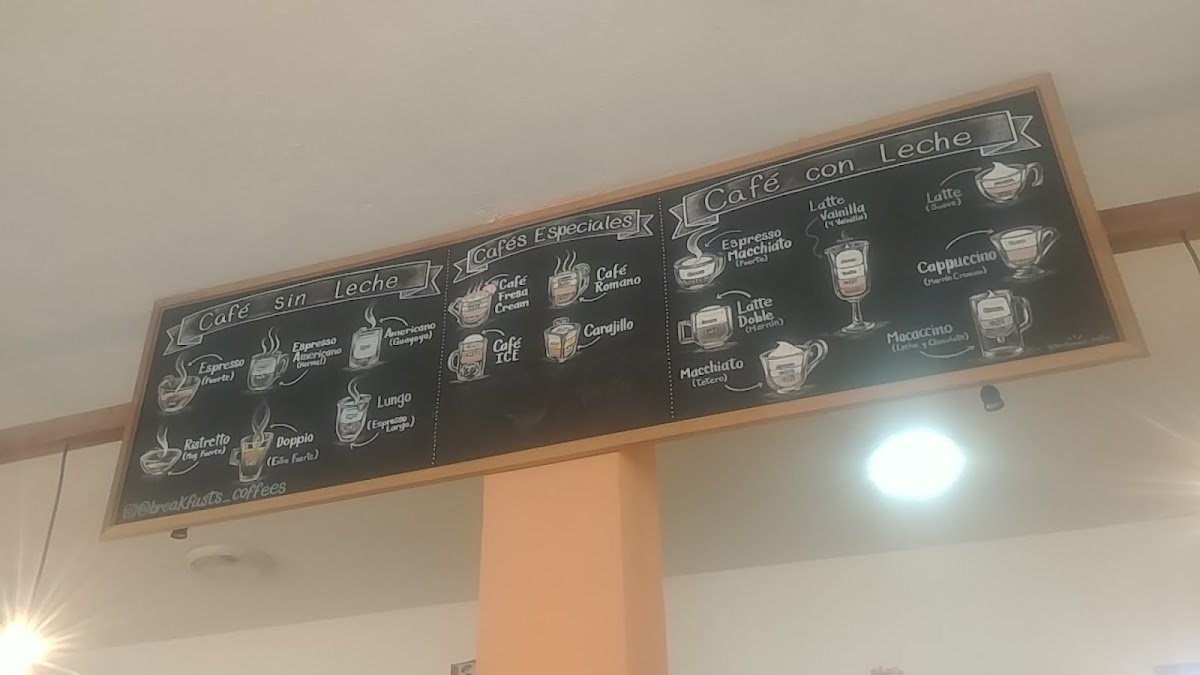 Café sin Leche
Espresso
(Fuerte)
Espresso
Americano
(Normal)
Americano
(Guayoyo)
Ristretto
(Muy Fuerte)
Doppio
(Extra Fuerte)
Lungo
(Espresso
Largo)
@breakfasts_coffees
Cafés Especiales
Café
Fresa
Cream
Café
Romano
Café
ICE
Carajillo
Café con Leche
Espresso
Macchiato
(Fuerte)
Latte
Vainilla
(y Vainilla)
Latte
(Suave)
Latte
Doble
(Marrón)
Cappuccino
(Marrón Cremoso)
Macchiato
(Tetero)
Mocaccino
(Leche y Chocolate)